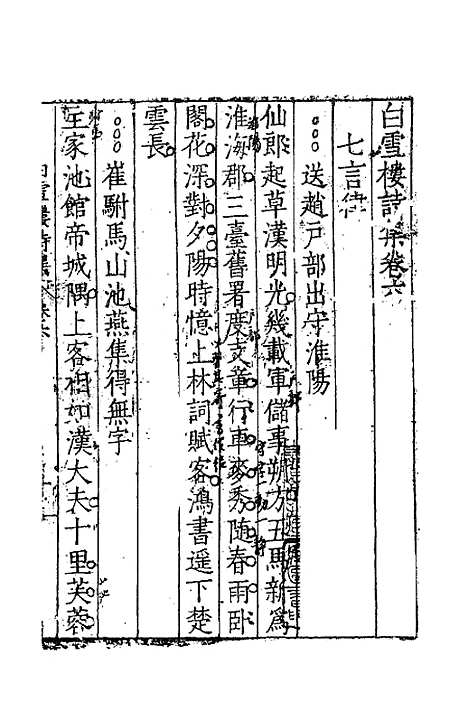 白雪樓詩集卷六
七言律
送趙戶部出守淮陽
仙郎起草漢明光幾載軍儲事朔方五馬新爲
淮海郡三臺舊署度支章行車麥秀随春雨臥
閣花深對夕陽時憶上林詞賦客鴻書遥下楚
雲長
崔駙馬山池燕集得無字
王家池館帝城隅上客相如漢大夫十里芙蓉